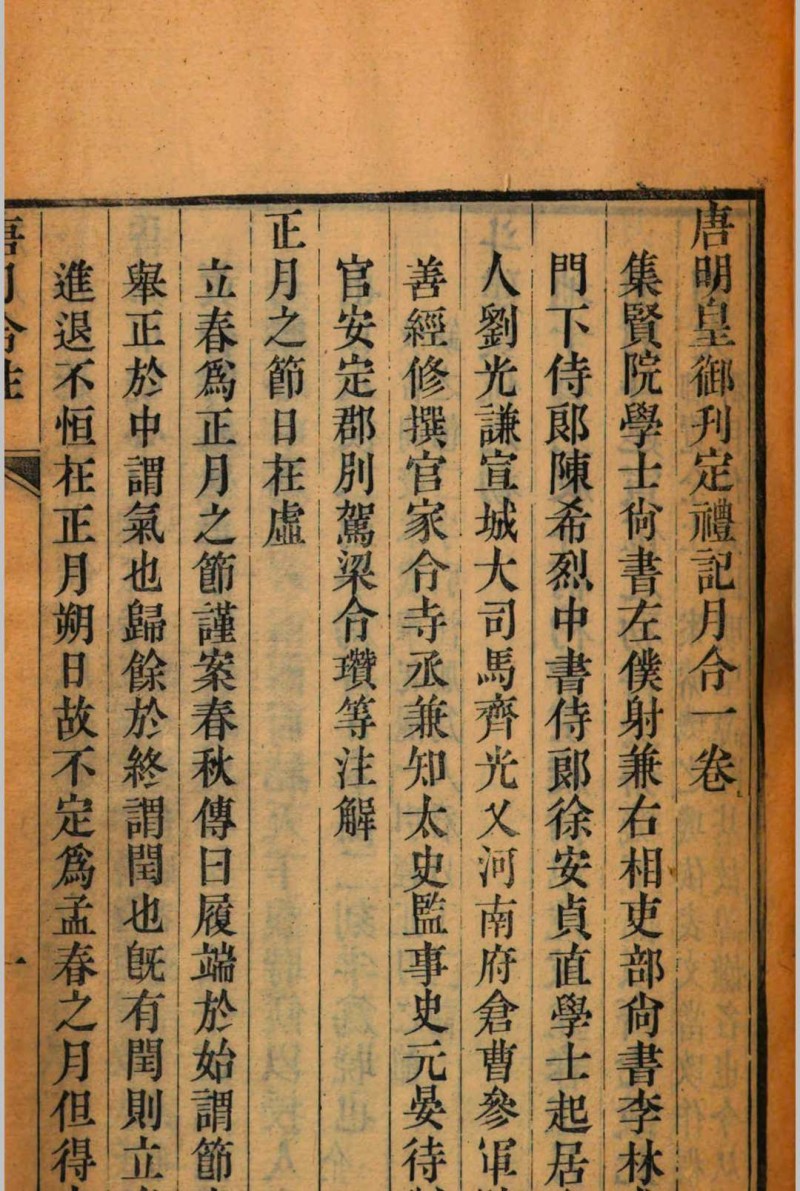 唐明皇御刋定禮記月令一卷
集賢院學士尙書左僕射兼右相吏部尙書李林
門下侍郞陳希烈中書侍郞徐安貞直學士起居
人劉光謙宣城大司馬齊光乂河南府倉曹參軍
善經修撰官家令寺丞兼知太史監事史元晏待
官安定郡別駕梁令瓚等注解
正月之節日在虛
立春爲正月之節謹案春秋傳曰履端於始謂節
舉正於中謂氣也歸餘於終謂閏也旣有閏則立
進退不恒在正月朔日故不定爲孟春之月但得
唐月令注
一